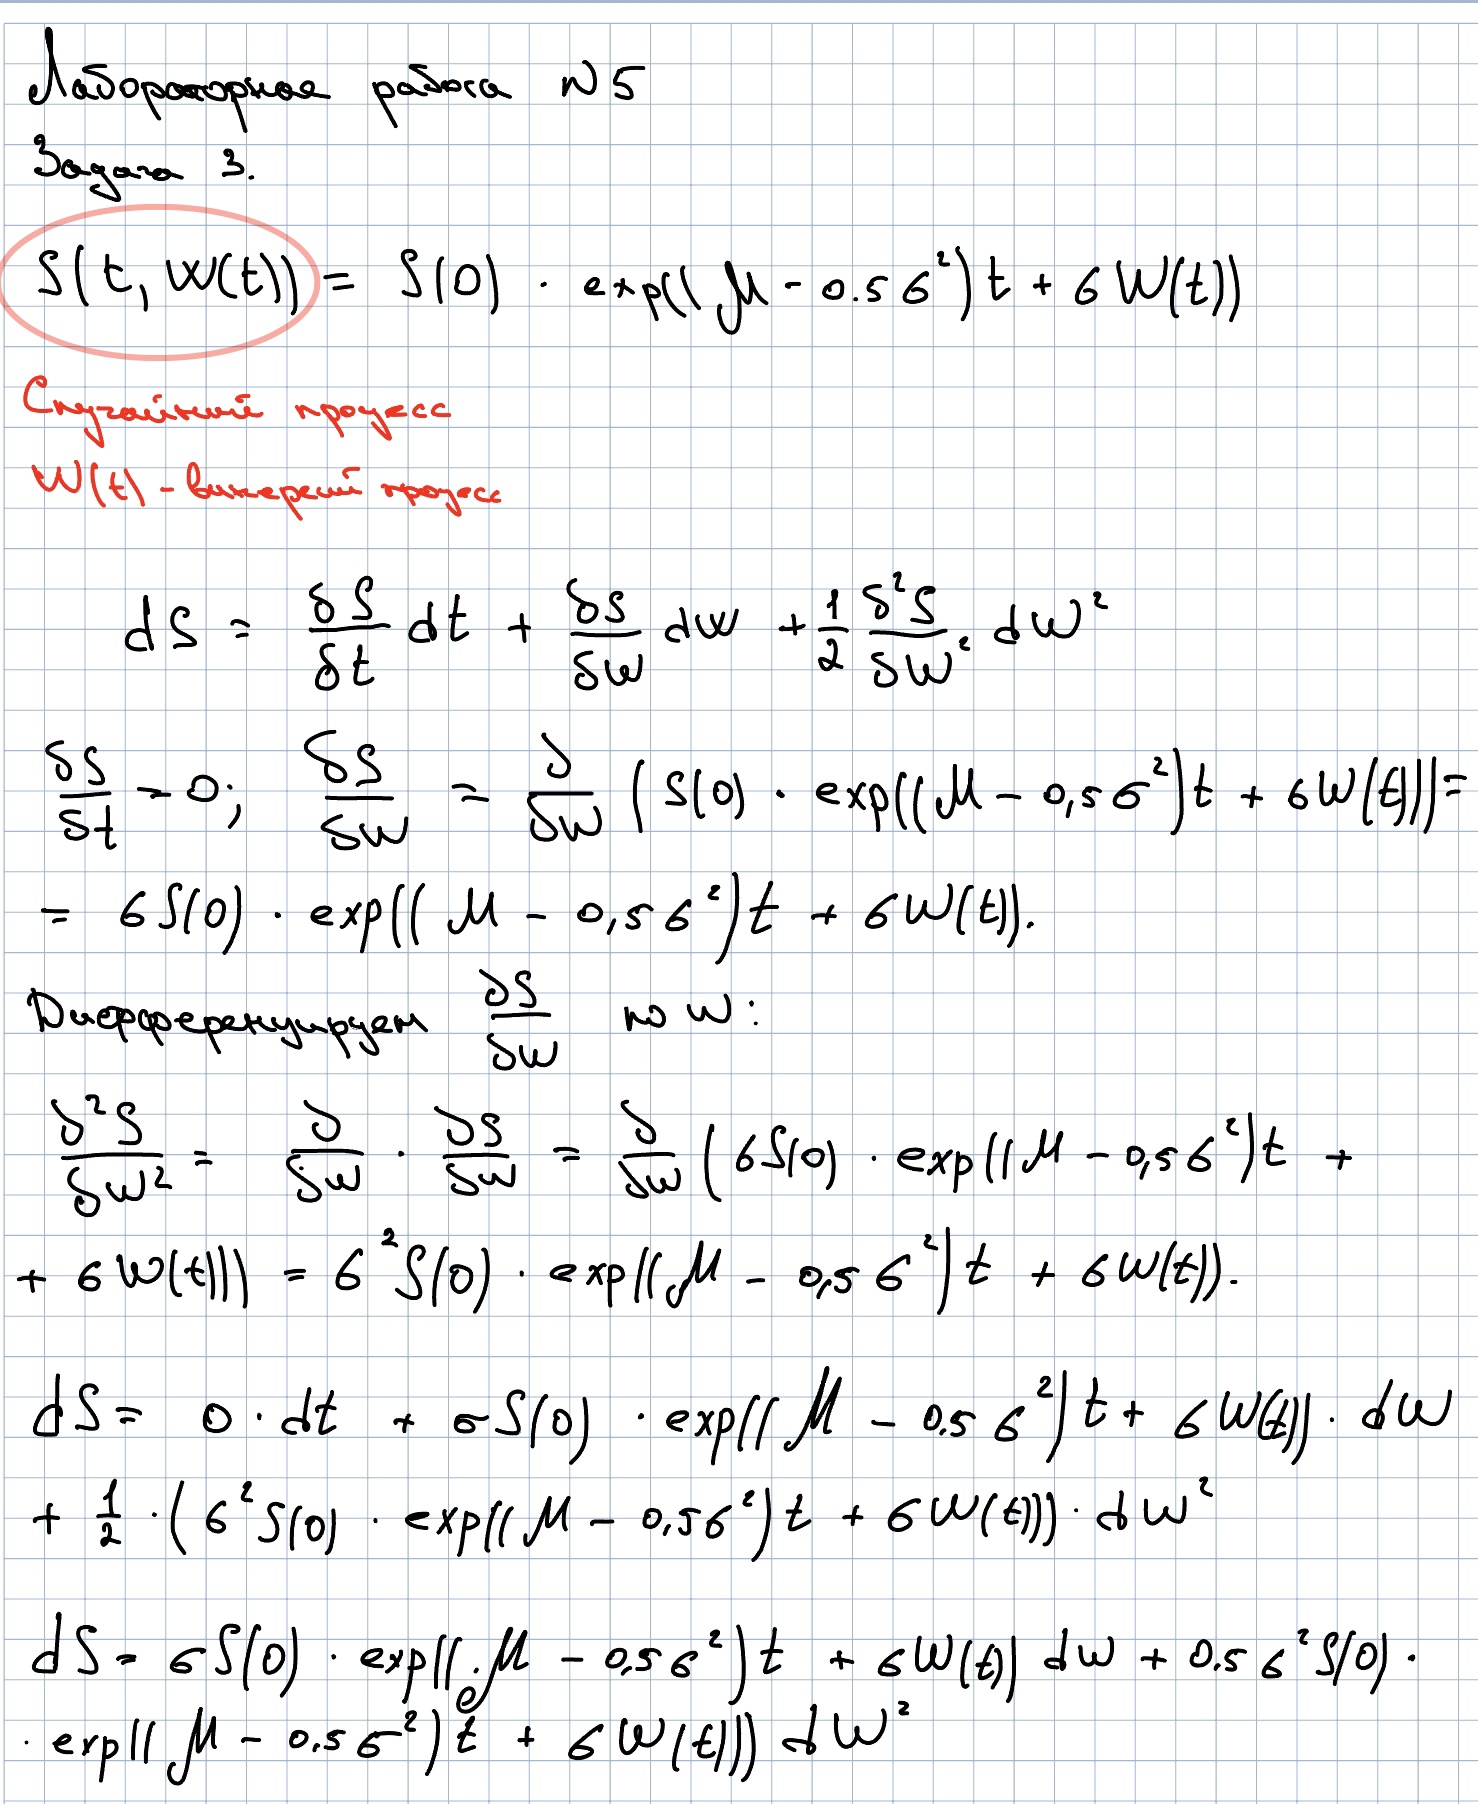 Лабораторная работа №5
Задача 3.
S(t, W(t)) = S(0) · exp((μ - 0.5σ²)t + σW(t))
Случайный процесс
W(t) - винеровский процесс
dS = δS/δt dt + δS/δW dW + 1/2 δ²S/δW² dW²
δS/δt = 0; δS/δW = ∂/δW (S(0) · exp((μ - 0,5σ²)t + σW(t))) =
= σS(0) · exp((μ - 0,5σ²)t + σW(t)).
Дифференцируем ∂S/δW по W:
∂²S/δW² = ∂/δW · ∂S/δW = ∂/δW (σS(0) · exp((μ - 0,5σ²)t +
+ σW(t))) = σ²S(0) · exp((μ - 0,5σ²)t + σW(t)).
dS = 0 · dt + σS(0) · exp((μ - 0.5σ²)t + σW(t)) · dW
+ 1/2 · (σ²S(0) · exp((μ - 0,5σ²)t + σW(t))) · dW²
dS = σS(0) · exp((μ - 0,5σ²)t + σW(t)) dW + 0.5σ²S(0) ·
· exp((μ - 0.5σ²)t + σW(t))) dW²